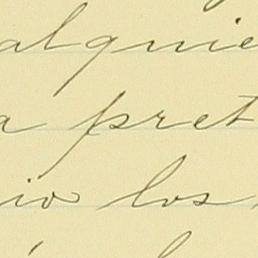 alquie
a pret
io los